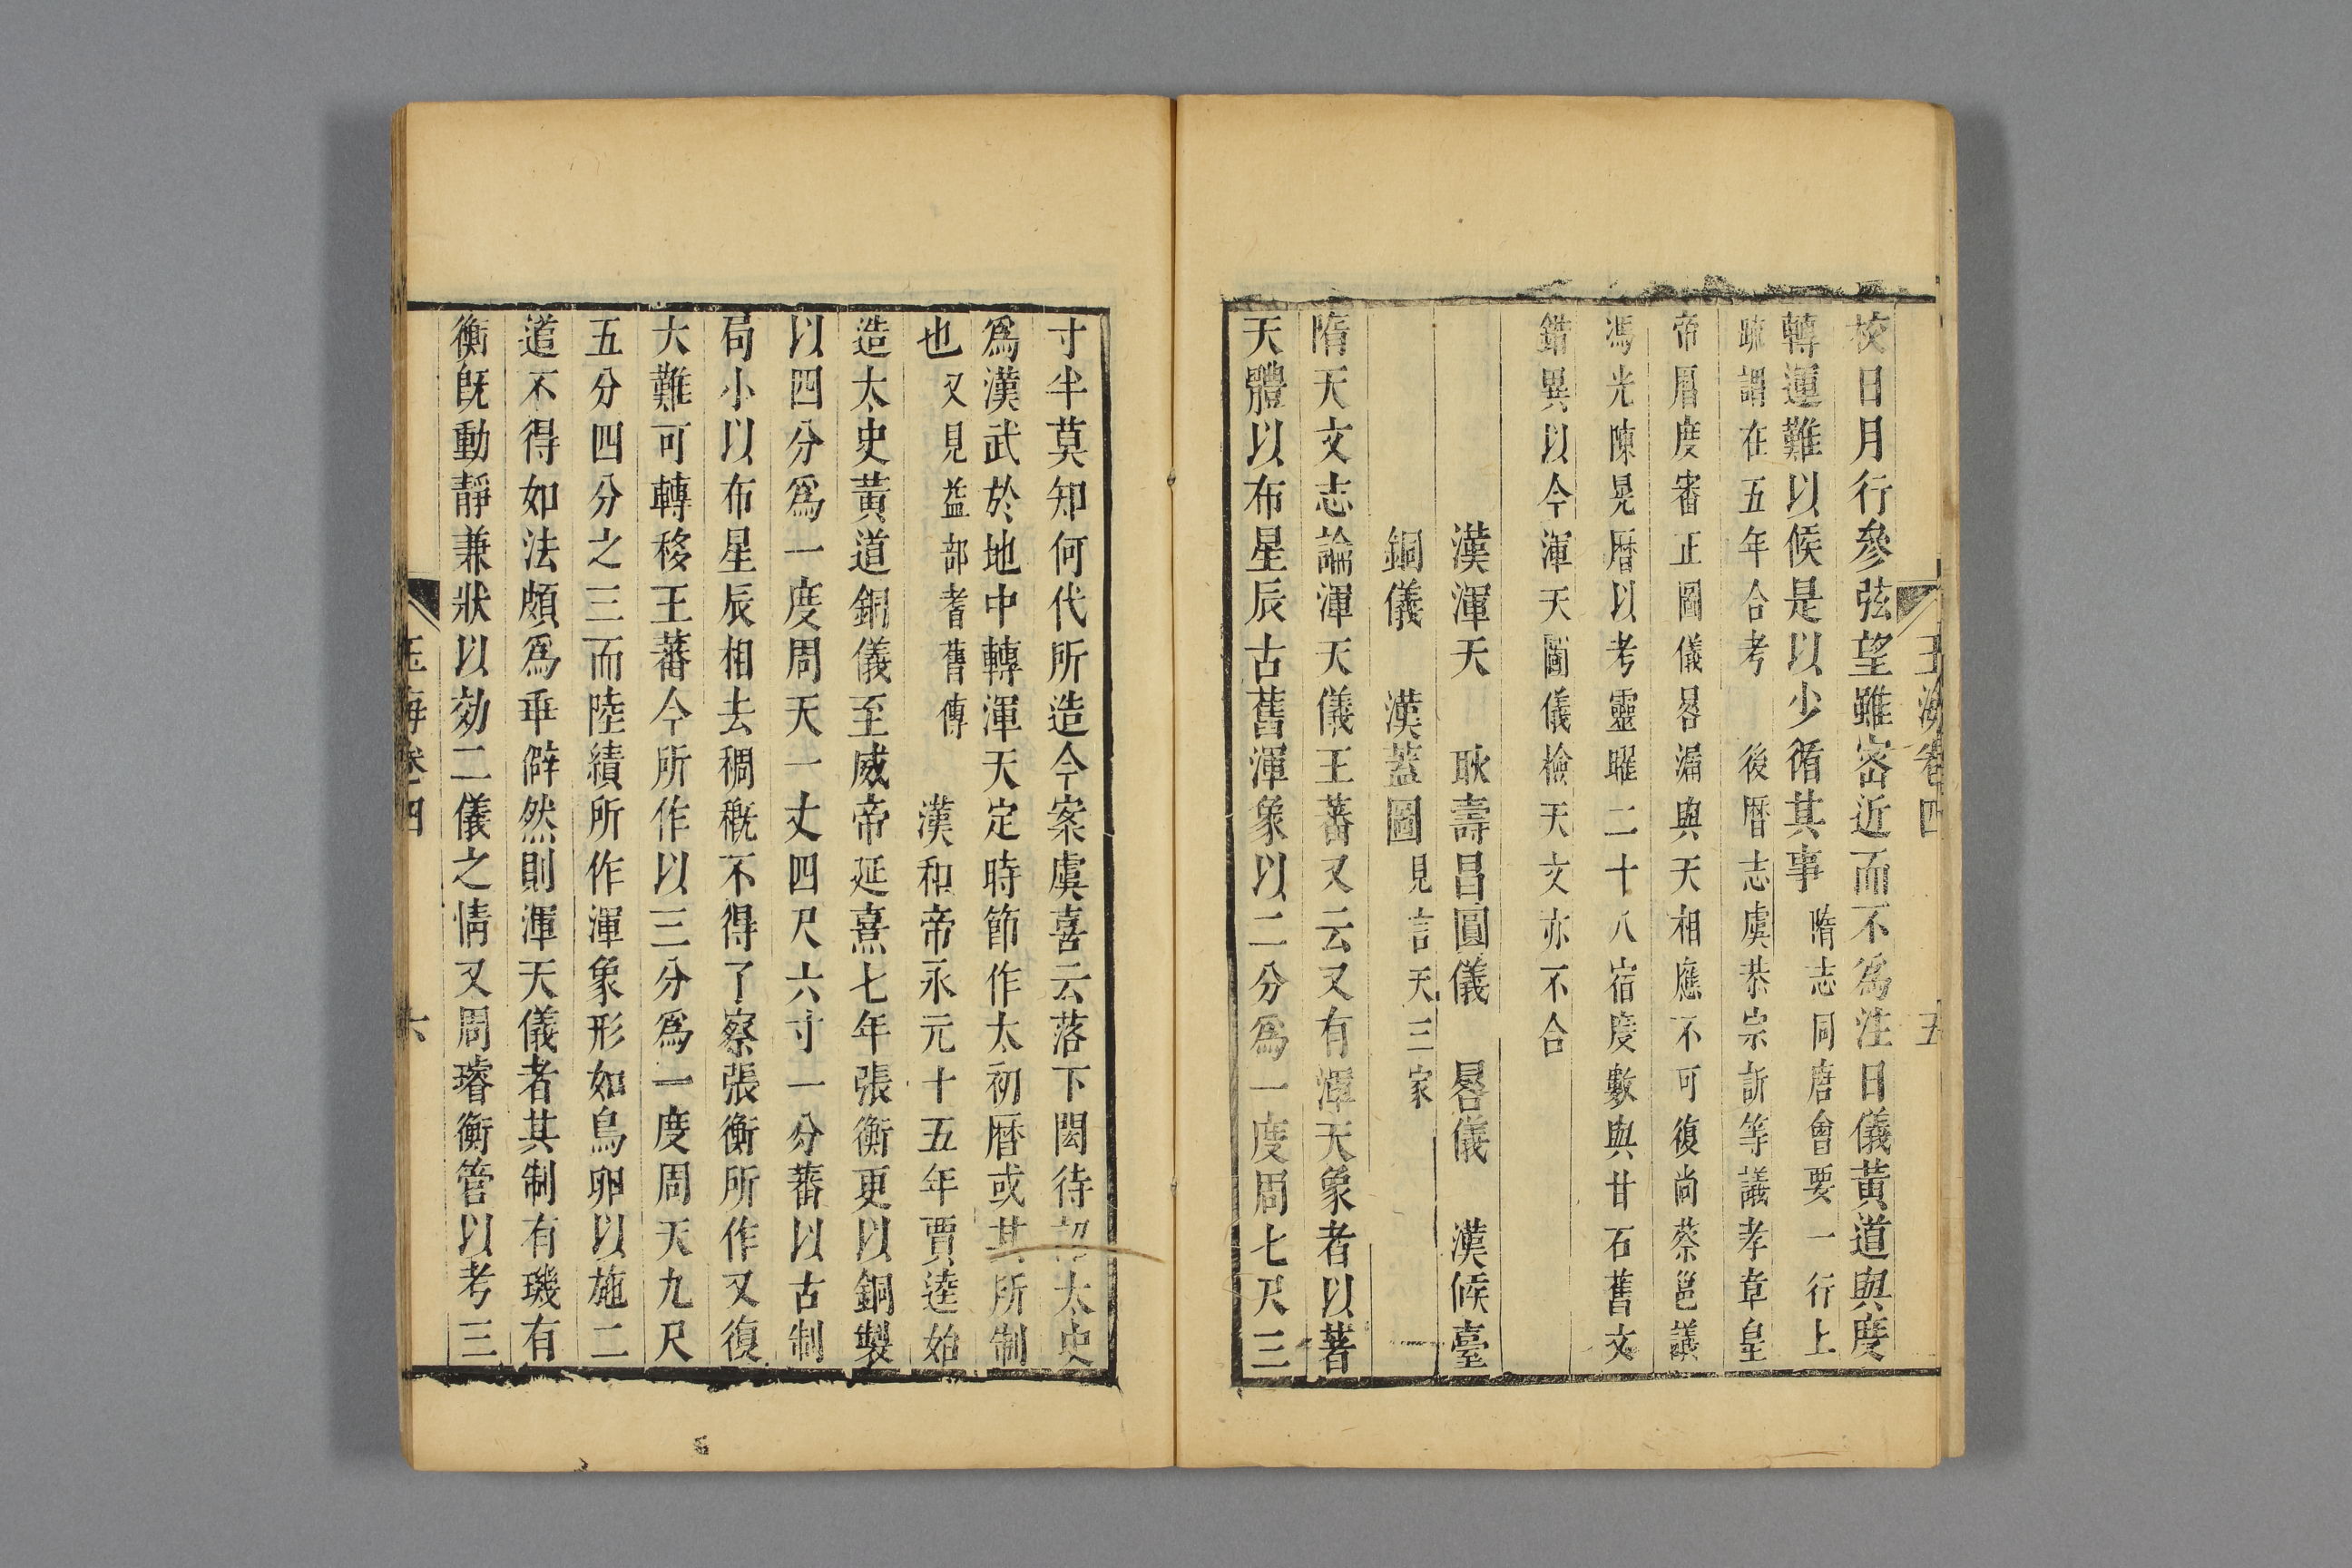 玉海卷四 五
校日月行參弦望雖密近而不為注日儀黃道與度
轉運難以候是以少循其事 隋志同唐會要一行上
疏謂在五年合考 後曆志虞恭宗訢等議孝章皇
帝曆度審正圖儀晷漏與天相應不可復尚蔡邕議
馮光陳晃曆以考靈曜二十八宿度數與甘石舊文
錯異以今渾天圖儀檢天文亦不合
漢渾天 耿壽昌圓儀 晷儀 漢候臺
銅儀 漢蓋圖 見言天三家
隋天文志論渾天儀王蕃又云又有渾天象者以著
天體以布星辰古舊渾象以二分為一度周七尺三
寸半莫知何代所造今案虞喜云落下閎待詔太史
為漢武於地中轉渾天定時節作太初曆或其所制
也 又見益部耆舊傳 漢和帝永元十五年賈逵始
造太史黃道銅儀至威帝延熹七年張衡更以銅製
以四分為一度周天一丈四尺六寸一分蕃以古制
局小以布星辰相去稠穊不得了察張衡所作又復
大難可轉移王蕃今所作以三分為一度周天九尺
五分四分之三而陸績所作渾象形如鳥卵以施二
道不得如法頗為乖僻然則渾天儀者其制有璣有
衡既動靜兼狀以効二儀之情又周璿衡管以考三
玉海卷四 六